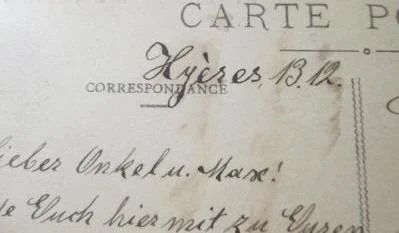 CARTE PO
Hyères, 13.12.
CORRESPONDANCE
lieber Onkel u. Max!
Euch hiermit zu Euren